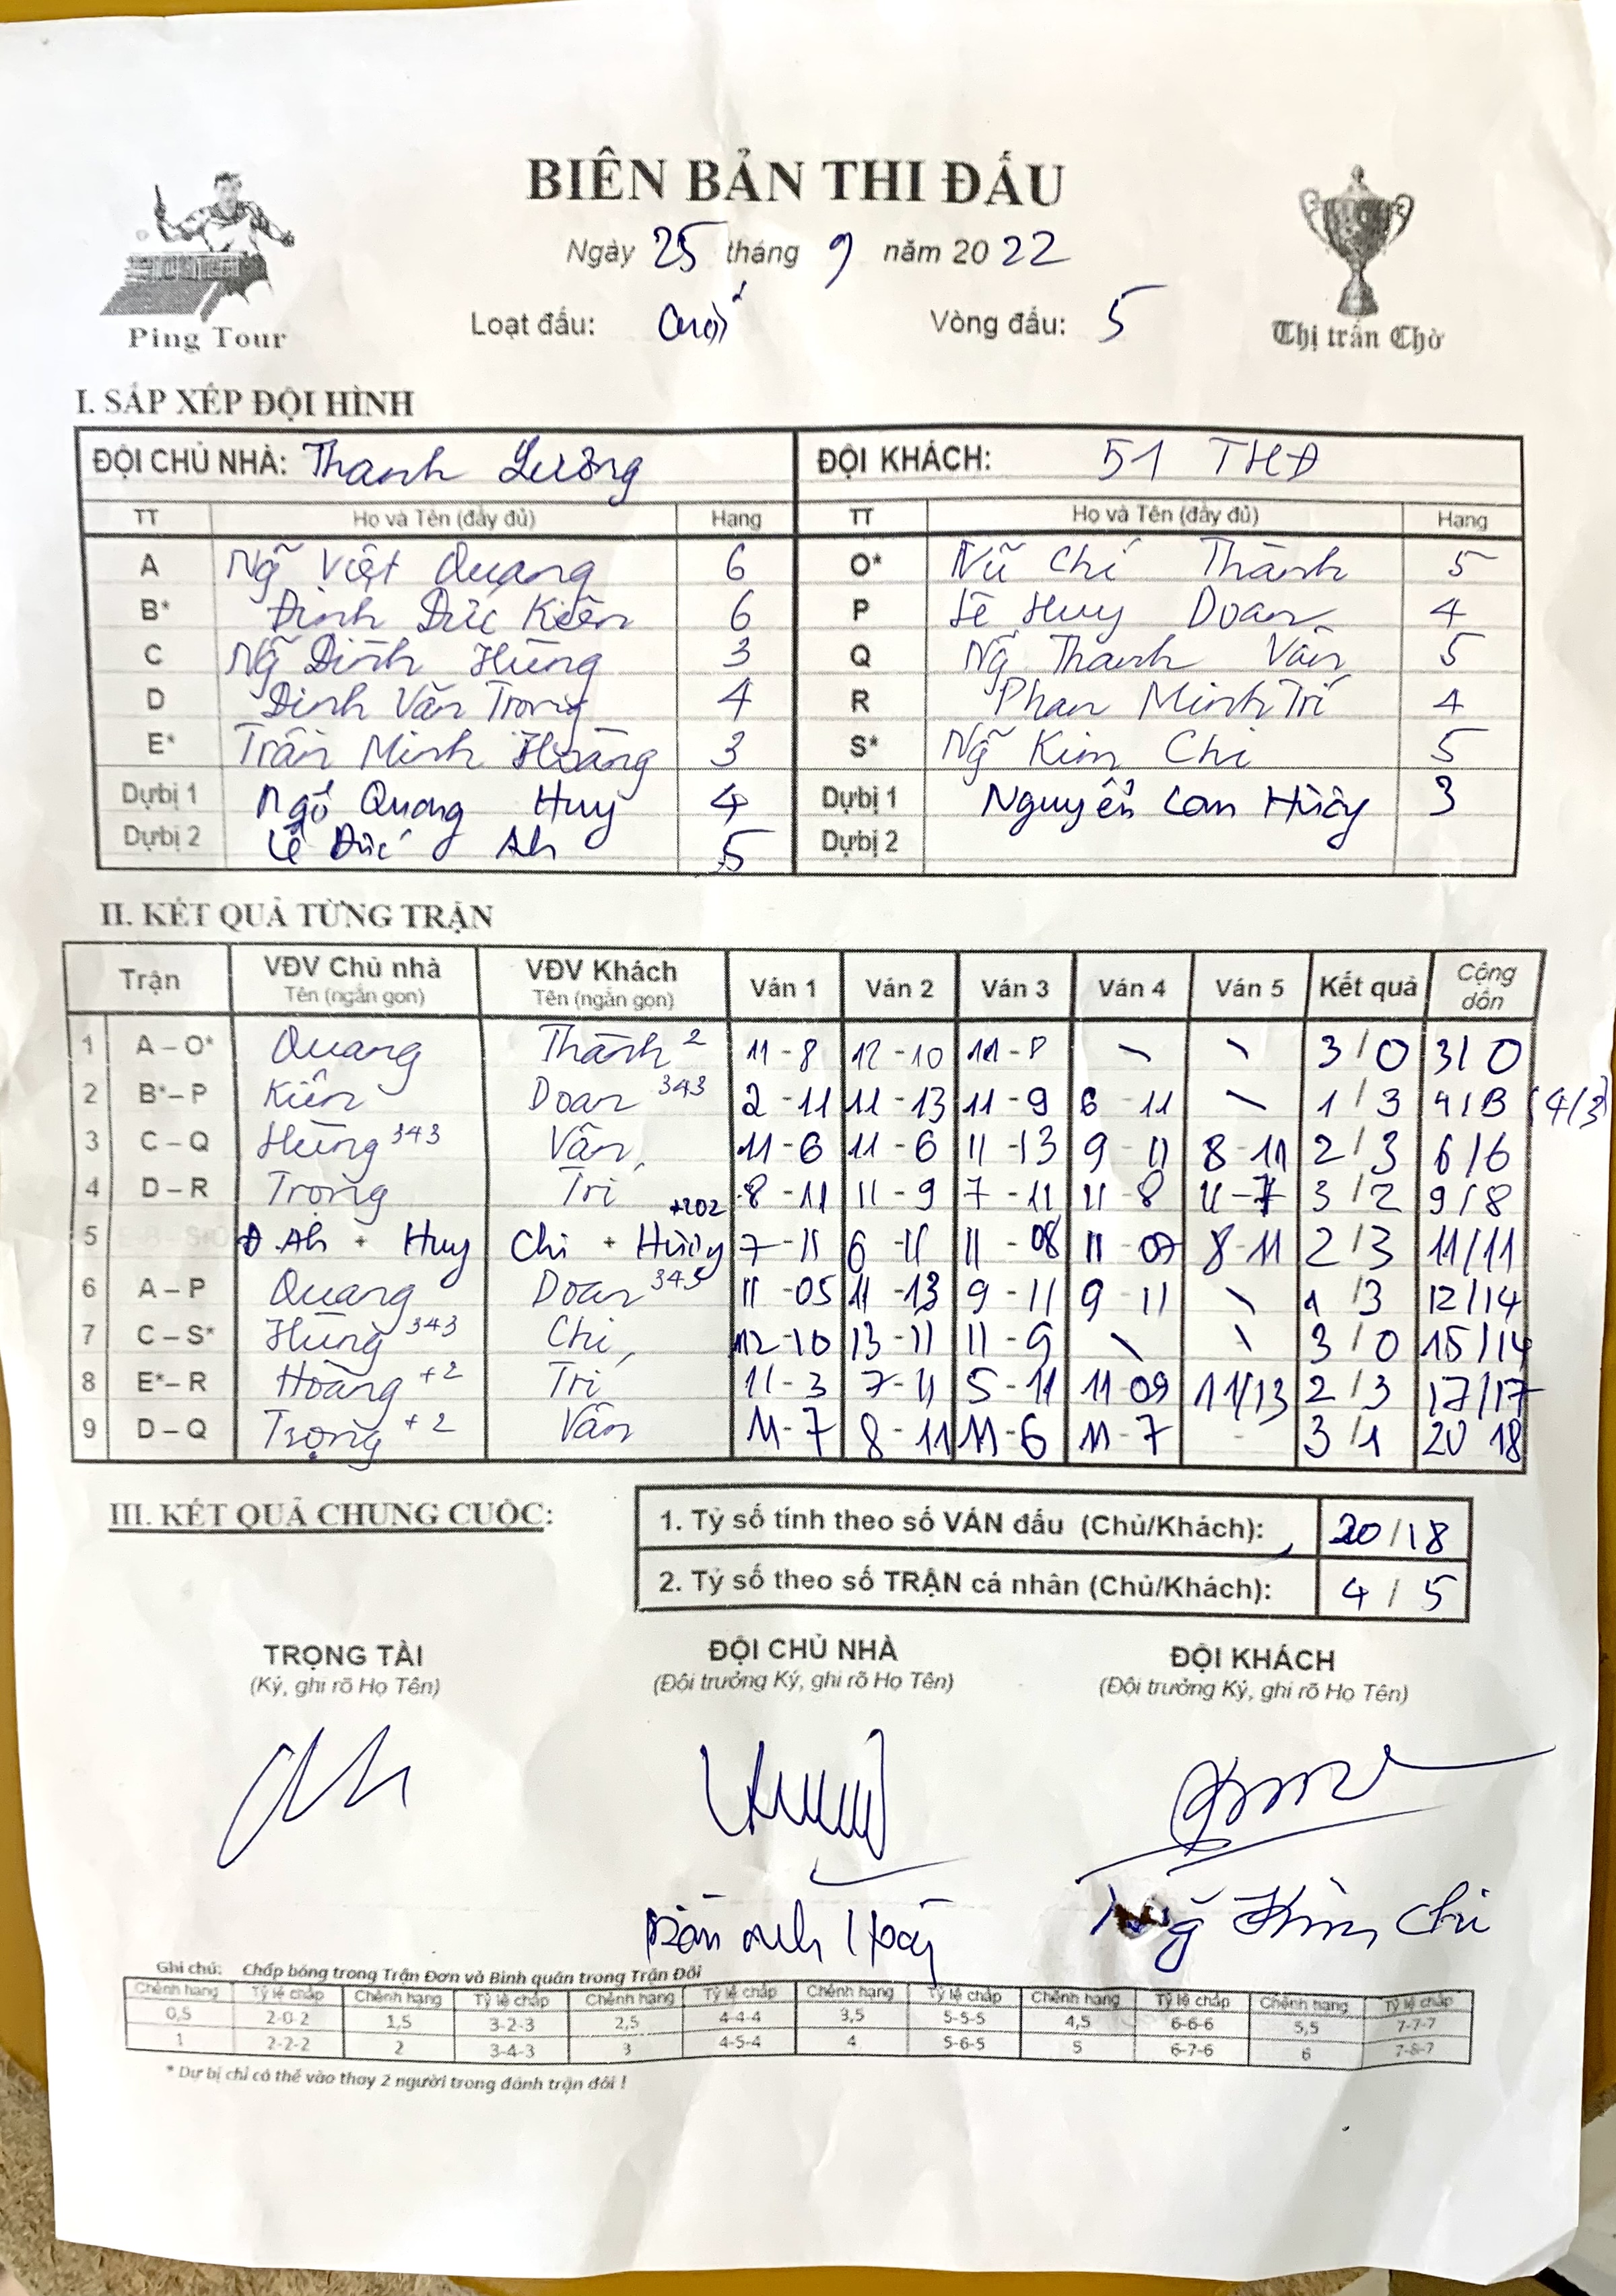 BIÊN BẢN THI ĐẤU
Ngày 25 tháng 9 năm 2022
Ping Tour
Loạt đấu: Cuối Vòng đấu: 5
Thị trấn Chờ
I. SẮP XẾP ĐỘI HÌNH
ĐỘI CHỦ NHÀ: Thanh Lương ĐỘI KHÁCH: 51 THĐ
TT Họ và Tên (đầy đủ) Hạng TT Họ và Tên (đầy đủ) Hạng
A Ng̃ Việt Quang 6 O* Chí Thành 5
B* Đinh Đức Kiên 6 P Lê Huy Doan 4
C Ng̃ Đình Hùng 3 Q Ng̃ Thanh Vân 5
D Đinh Văn Trọng 4 R Phan Minh Trí 4
E* Trần Minh Hoàng 3 S* Ng̃ Kim Chi 5
Dự bị 1 Ngô Quang Huy 4 Dự bị 1 Nguyễn Lan Hương 3
Dự bị 2 Lê Đức Anh 5 Dự bị 2
II. KẾT QUẢ TỪNG TRẬN
Trận VĐV Chủ nhà Tên (ngắn gọn) VĐV Khách Tên (ngắn gọn) Ván 1 Ván 2 Ván 3 Ván 4 Ván 5 Kết quả Cộng dồn
1 A – O* Quang Thành 2 11-8 12-10 11-8 \ \ 3/0 3/0
2 B* – P Kiên Doan 343 2-11 11-13 11-9 6-11 \ 1/3 4/3 (4/3)
3 C – Q Hùng 343 Vân 11-6 11-6 11-13 9-11 8-11 2/3 6/6
4 D – R Trọng Trí 8-11 11-9 7-11 11-8 11-7 3/2 9/8
5 Đ. Ah + Huy Chi + Hương +202 7-11 6-11 11-08 11-09 8-11 2/3 11/11
6 A – P Quang Doan 343 11-05 11-13 9-11 9-11 \ 1/3 12/14
7 C – S* Hùng 343 Chi 12-10 13-11 11-9 \ \ 3/0 15/14
8 E* – R Hoàng +2 Trí 11-3 7-11 5-11 11-09 11/13 2/3 17/17
9 D – Q Trọng +2 Vân 11-7 8-11 11-6 11-7 - 3/1 20 18
III. KẾT QUẢ CHUNG CUỘC:
1. Tỷ số tính theo số VÁN đấu (Chủ/Khách): 20/18
2. Tỷ số theo số TRẬN cá nhân (Chủ/Khách): 4/5
TRỌNG TÀI ĐỘI CHỦ NHÀ ĐỘI KHÁCH
(Ký, ghi rõ Họ Tên) (Đội trưởng Ký, ghi rõ Họ Tên) (Đội trưởng Ký, ghi rõ Họ Tên)
Ng̃ Kim Chi
Ghi chú: Chấp bóng trong Trận Đơn và Bình quân trong Trận Đôi
Chênh hạng Tỷ lệ chấp Chênh hạng Tỷ lệ chấp Chênh hạng Tỷ lệ chấp Chênh hạng Tỷ lệ chấp Chênh hạng Tỷ lệ chấp Chênh hạng Tỷ lệ chấp
0,5 2-0-2 1,5 3-2-3 2,5 4-4-4 3,5 5-5-5 4,5 6-6-6 5,5 7-7-7
1 2-2-2 2 3-4-3 3 4-5-4 4 5-6-5 5 6-7-6 6 7-8-7
* Dự bị chỉ có thể vào thay 2 người trong đánh trận đôi !